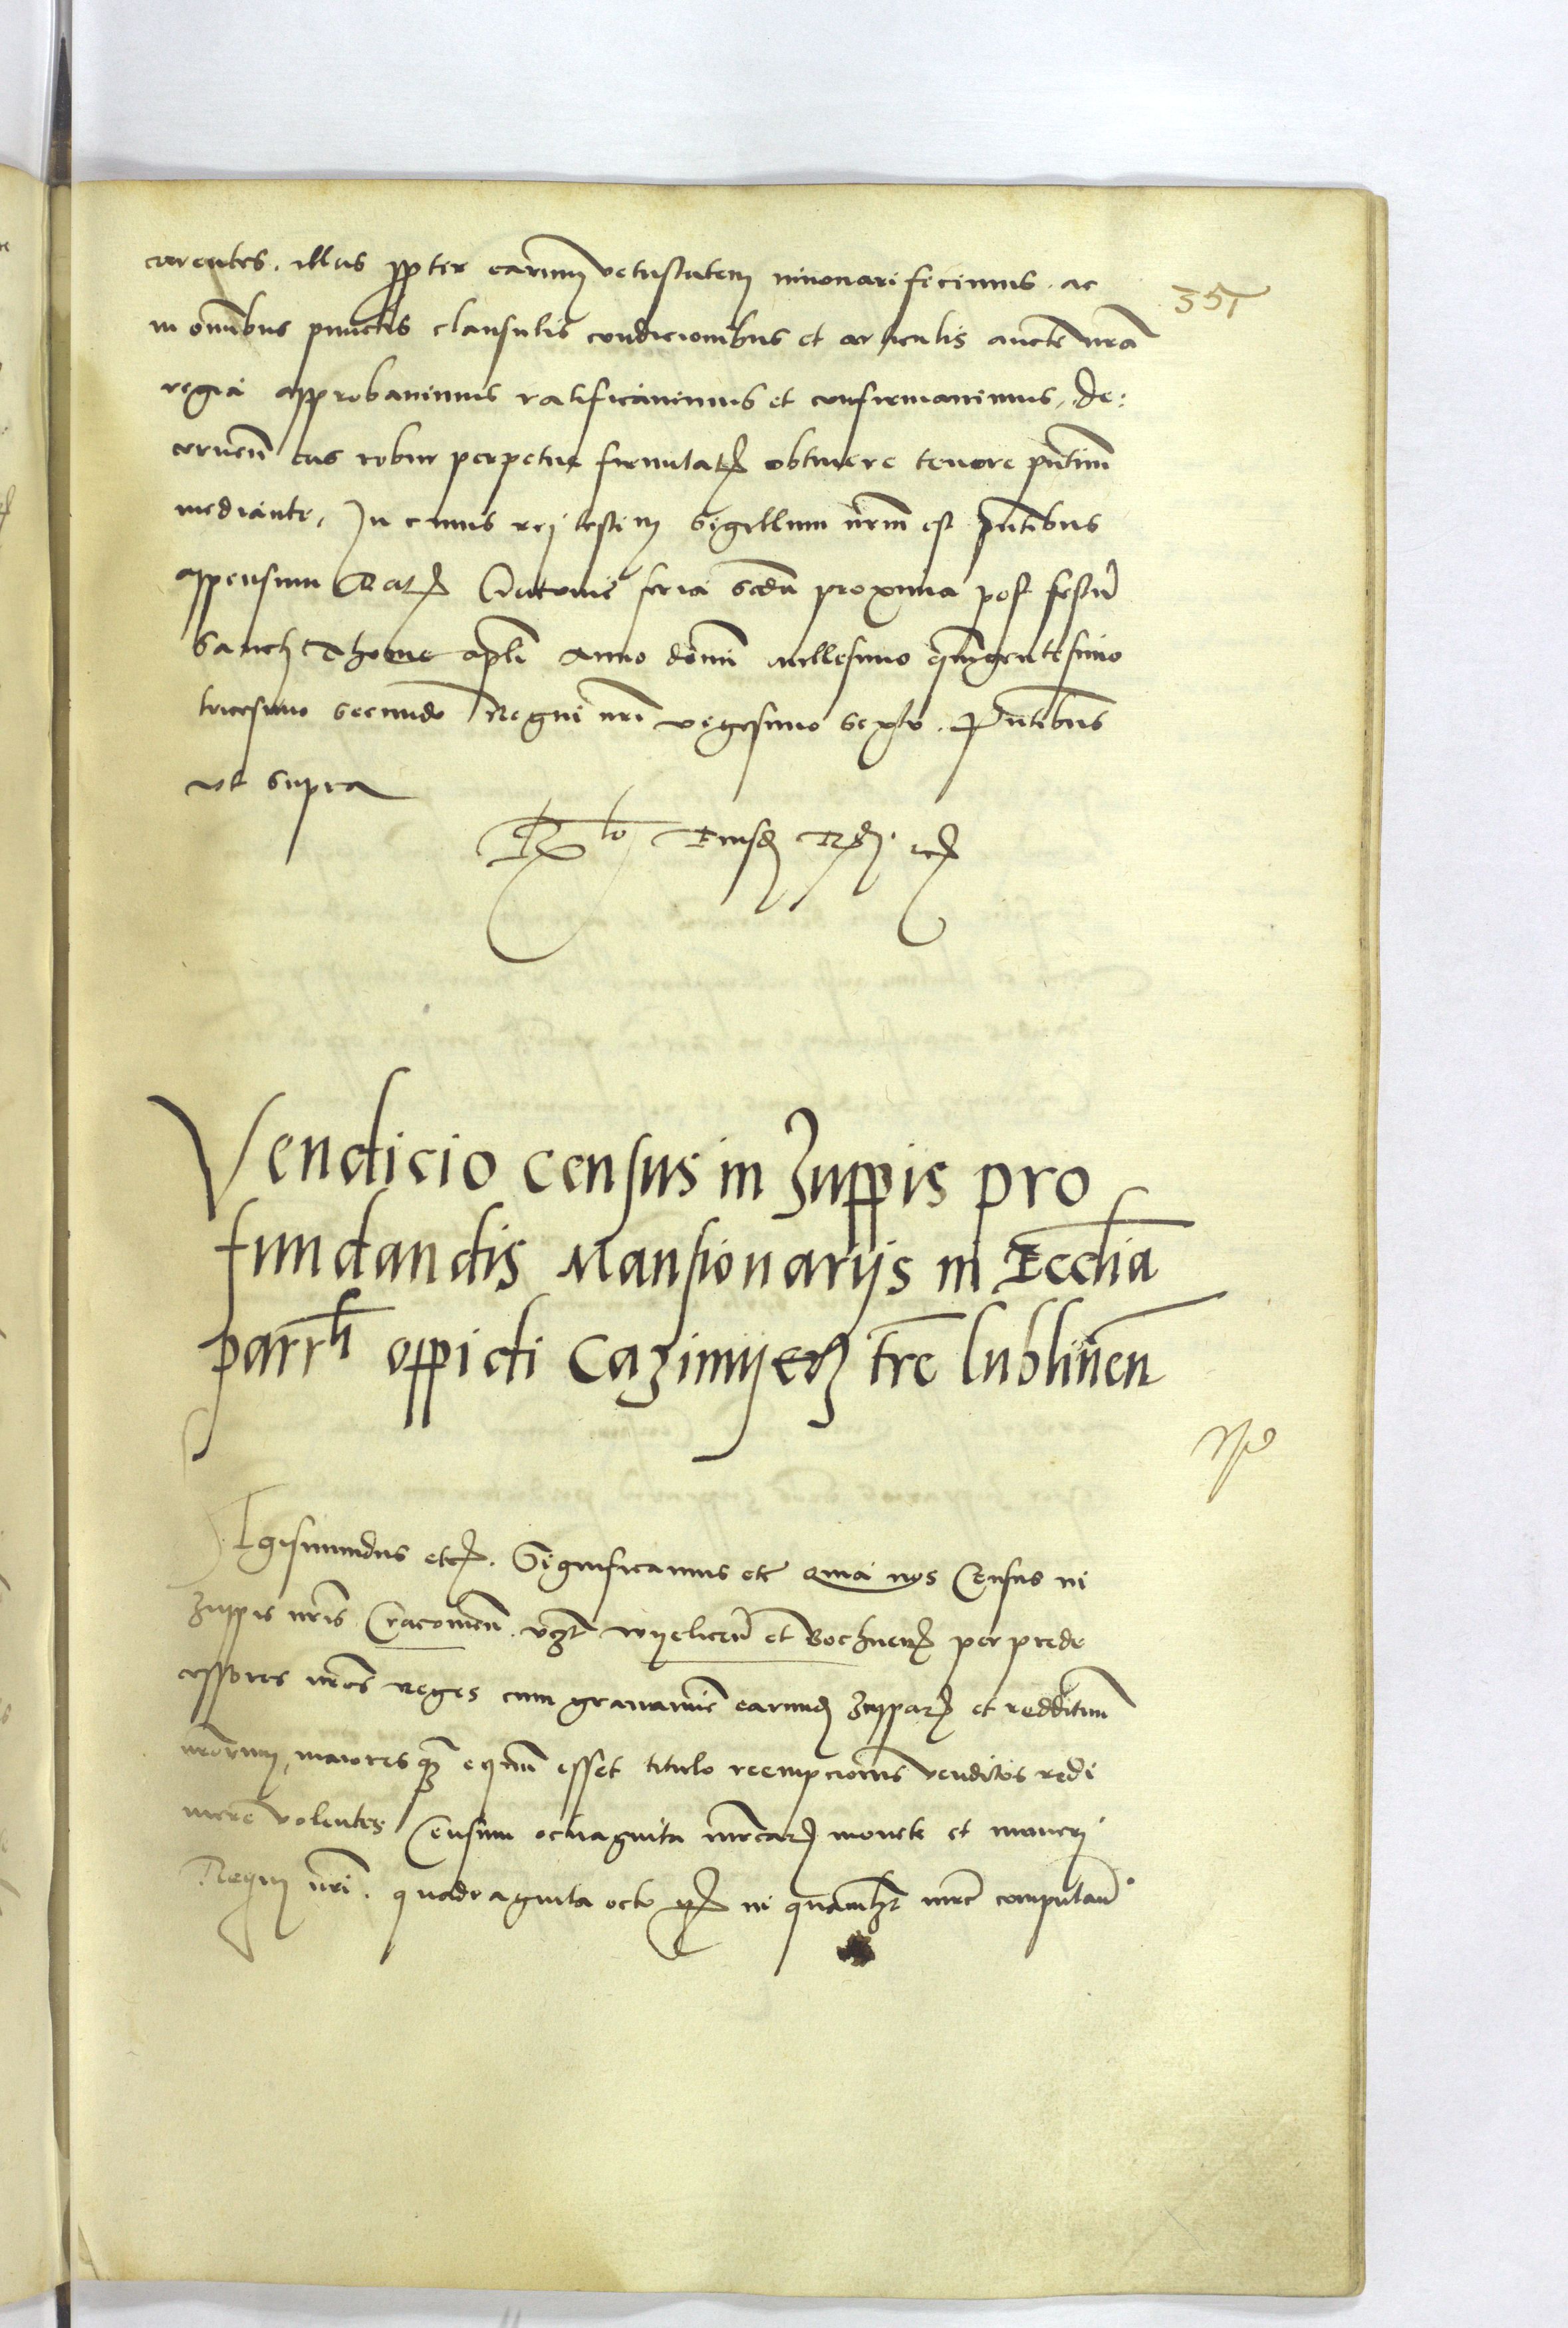 carentes. illas ꝓpter earum vetustatem innouari fecimus. ac
351
in om̄ibus punctis clausulis condicionibus et articulis aucte nr̄a
regia approbauimus ratificauimus et confirmauimus, de:
cernen̄ eas robur perpetue firmitatꝭ obtinere tenore pn̄tium
mediante, In cuius rei testim sigillum nr̄um est pn̄tibus
appensum Datꝭ Cracouie feria scd̄a proxima post festū
Sancti Thome apl̄i Anno domī millesimo quingentesimo
tricesimo secundo Regni nr̄i vigesimo sexto. Pn̄tibus
vt supra
Rlo Eiusd Rdi. etcꝭ
Vendicio census in Zuppis pro
fundandis Mansionarijs in Eccl̄ia
parrˡⁱ oppidi Cazimijeꝶ tr̄e lublinen̄
Igismundus etcꝭ. Significamus etc̄ quia nos Census in
Zuppis nr̄is Cracouien̄. vꝫt wyelicen̄ et Bochnenꝭ per prede
cessores nr̄os reges cum grauamīe earund Zupparꝭ et reddituum
nr̄orum, maiores qꝫ equum esset titulo reempcionis venditos redi
mere volentes Censum octuaginta mr̄carꝭ monete et numeri
Regni nr̄i. quadraginta octo gꝭ in quamlꝫt mr̄c computan̄